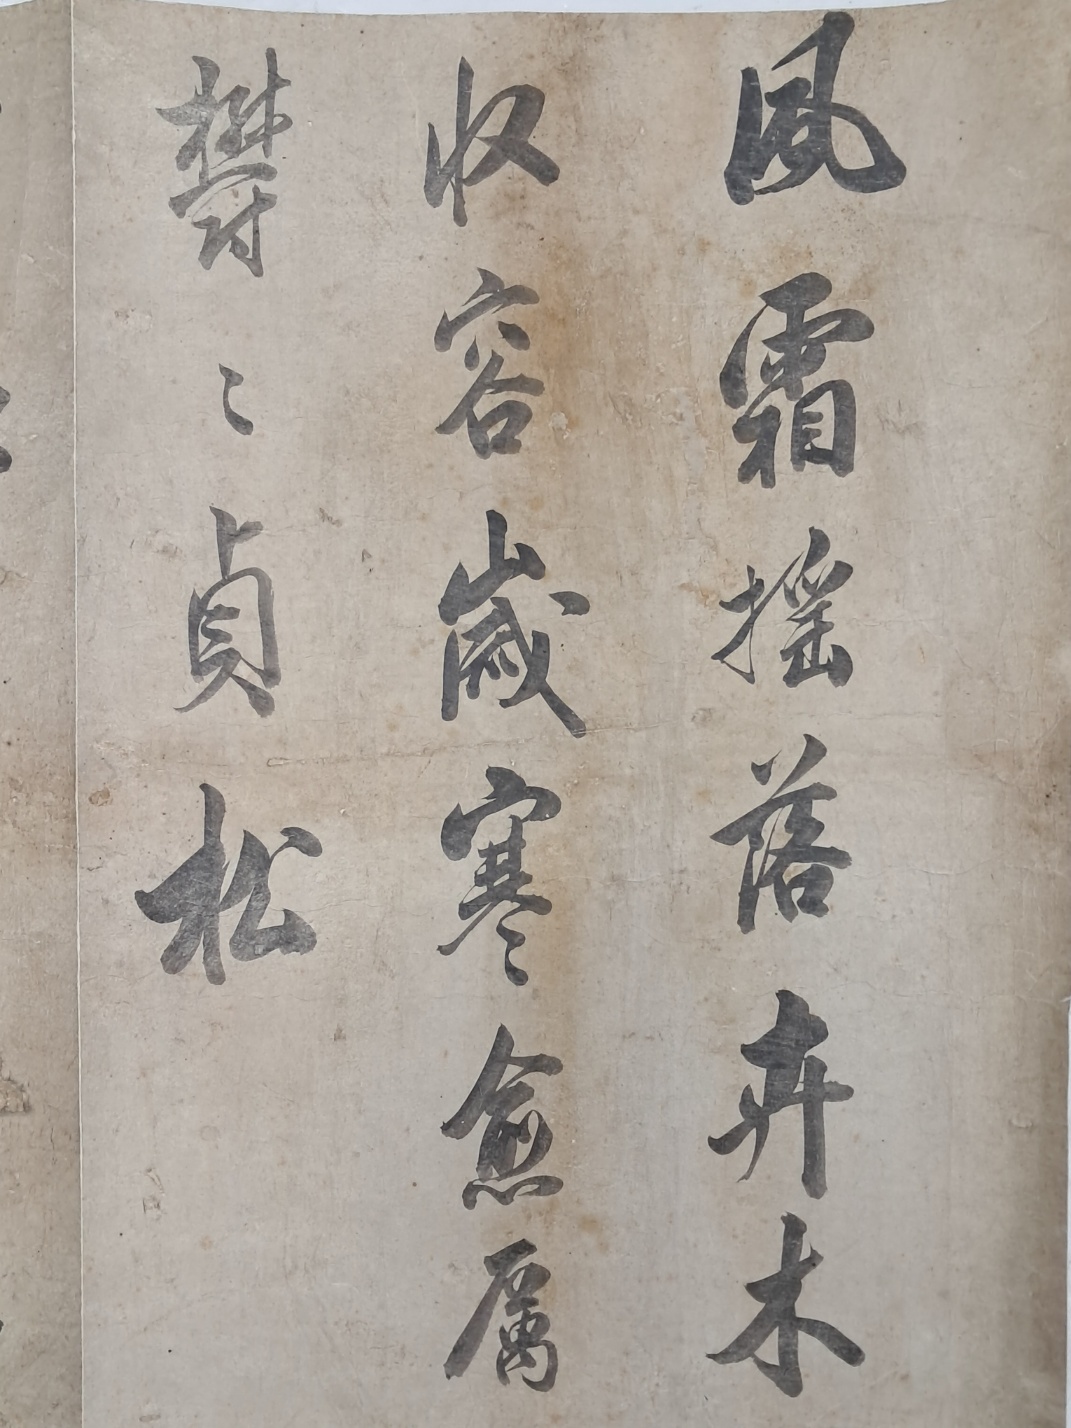 風霜搖落卉木
收容歲寒愈厲
欝〻貞松